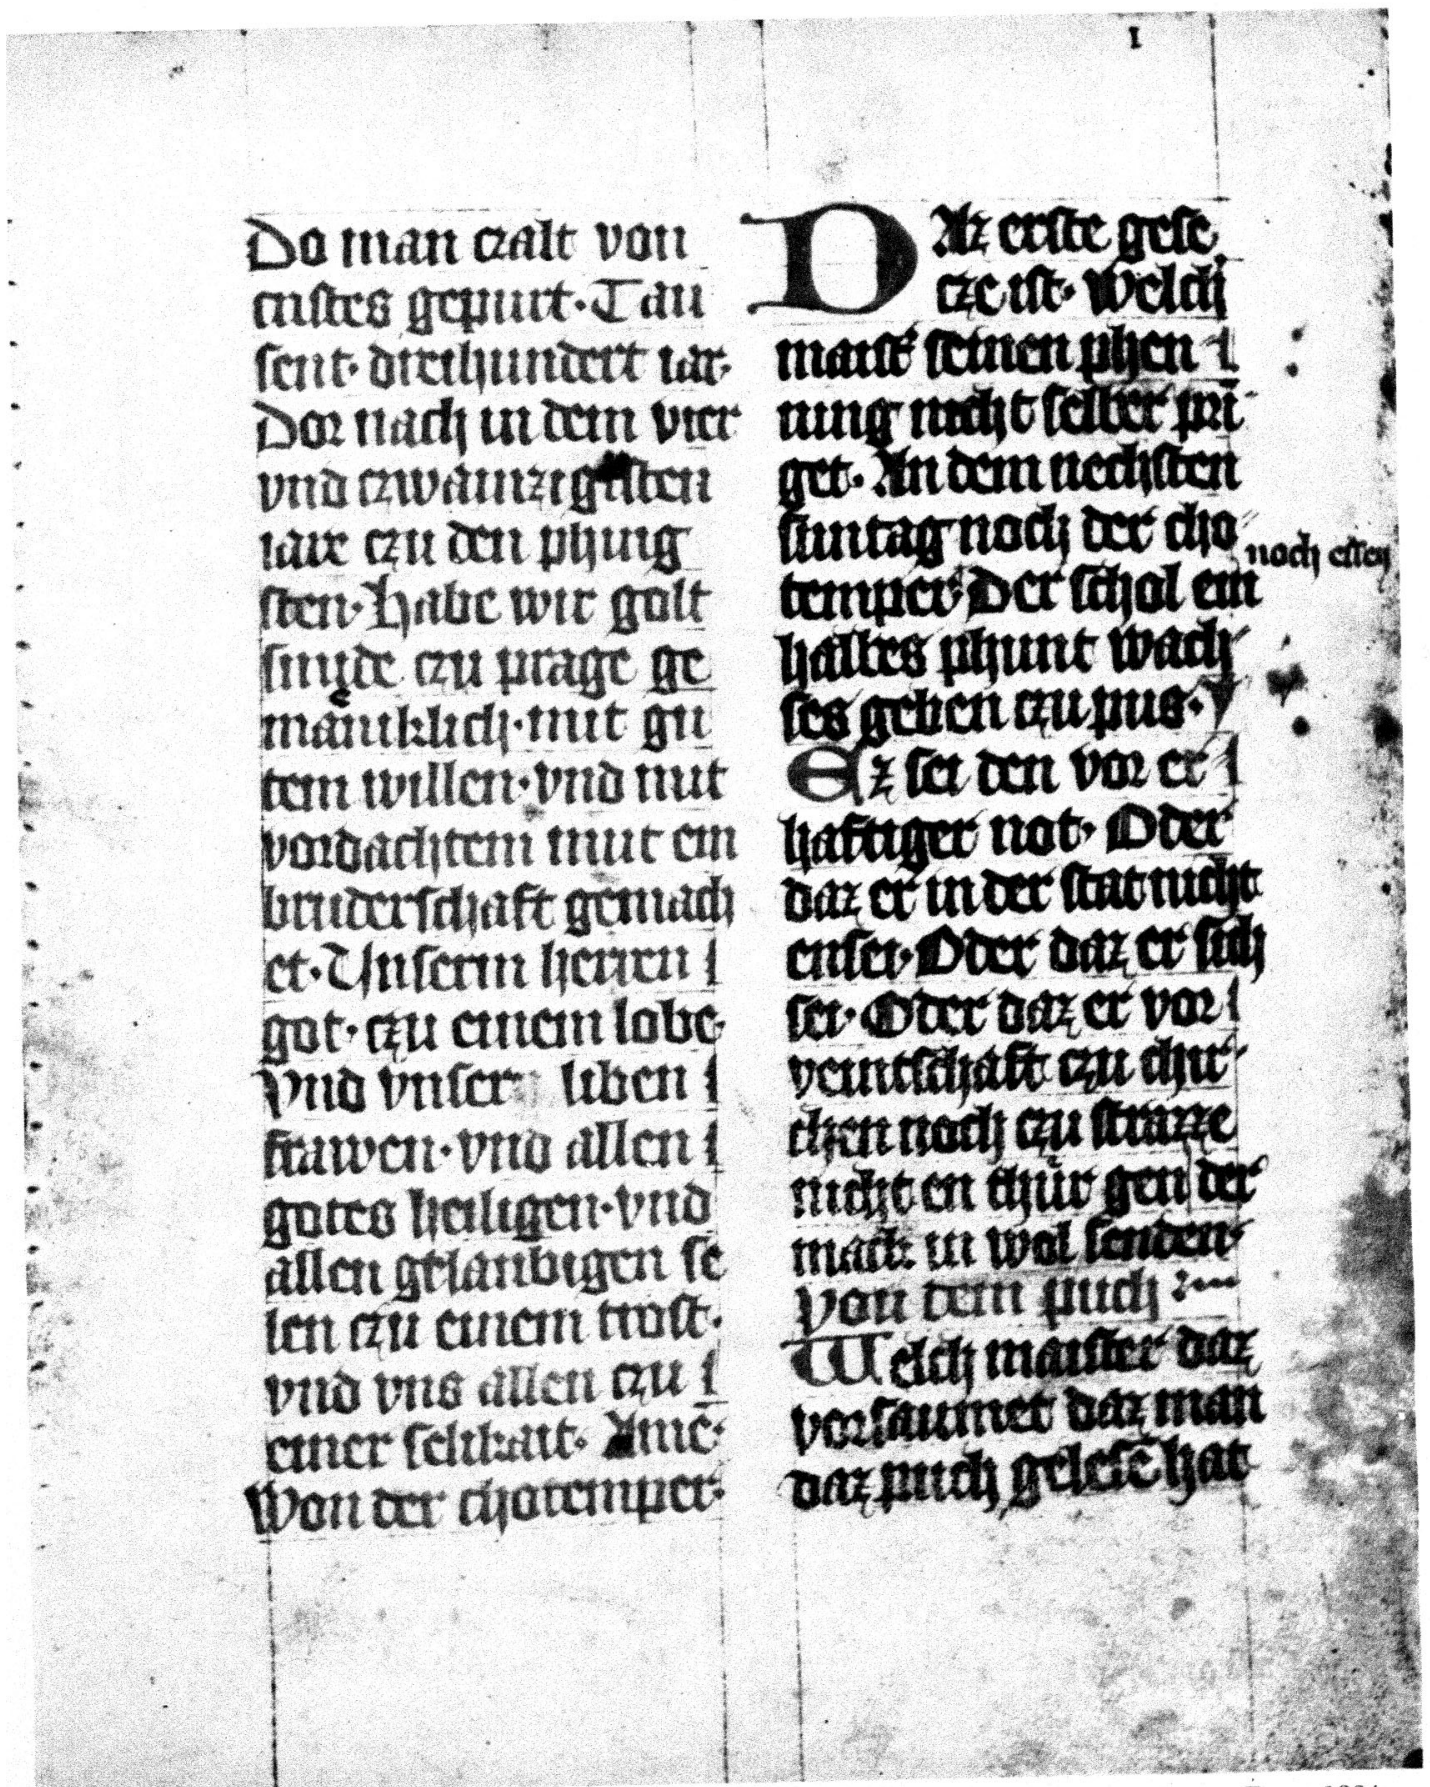 I
Do man czalt von
cristes gepurt· Tau
sent· dreihundert iar·
Dor nach in dem vier
vnd czwainzigisten
iare czu den phing
sten· Habe wir golt
smyde czu prage ge
mainklich· mit gu
tem willen· vnd mit
vordachtem mut ein
bruderschaft gemach
et· Unserm herren
got· czu einem lobe·
Vnd vnser liben
frawen· vnd allen
gotes heiligen· vnd
allen gelaubigen se
len czu einem trost·
vnd vns allen czu
einer selikait· Amē·
Von der chotemper·
DAz erste gese
cze ist· Welch
maist' seinen phen
ning nicht selber prī
get· An dem nechsten
suntag noch der cho
noch essen
temper· Der schol ein
halbes phunt wach
ses geben czu pus· V
Ez sei den vor er
haftiger not· Oder
daz er in der stat nicht
ensei· Oder daz er sich
sei· Oder daz er vor
veintschaft czu chir
chen noch czu strazze
nicht en thur gen der
mack in wol senden·
Von dem puch
Welch maister daz
vorsaumet daz man
daz puch gelesē hat